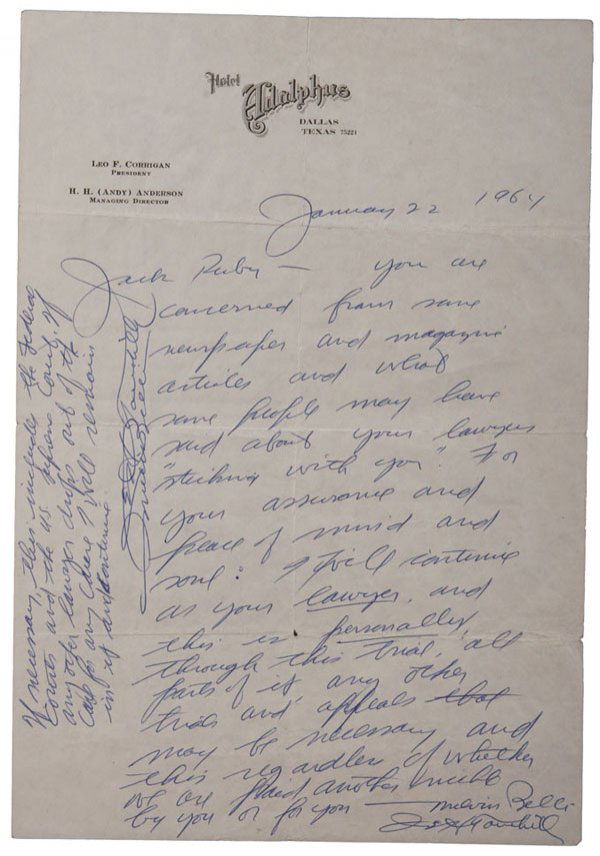 Hotel
Adolphus
DALLAS
TEXAS 75221
LEO F. CORRIGAN
PRESIDENT
H. H. (ANDY) ANDERSON
MANAGING DIRECTOR
January 22 1964
Jack Ruby — you are
concerned from some
newspaper and magazine
articles and what
some people may have
said about your lawyers
"sticking with you." For
your assurance and
peace of mind and
soul: I will continue
as your lawyer, and
this is personally
through this trial, all
parts of it any other
trials and appeals that
may be necessary and
this regardless of whether
we are paid another nickle
by you or for you — Melvin Belli
Joe H. Tonahill
If necessary, this includes the Federal
Courts and the U.S. Supreme Court. If
any other lawyer drops out of the
case for any cause I will remain
in it and continue.
Joe H. Tonahill
Melvin Belli